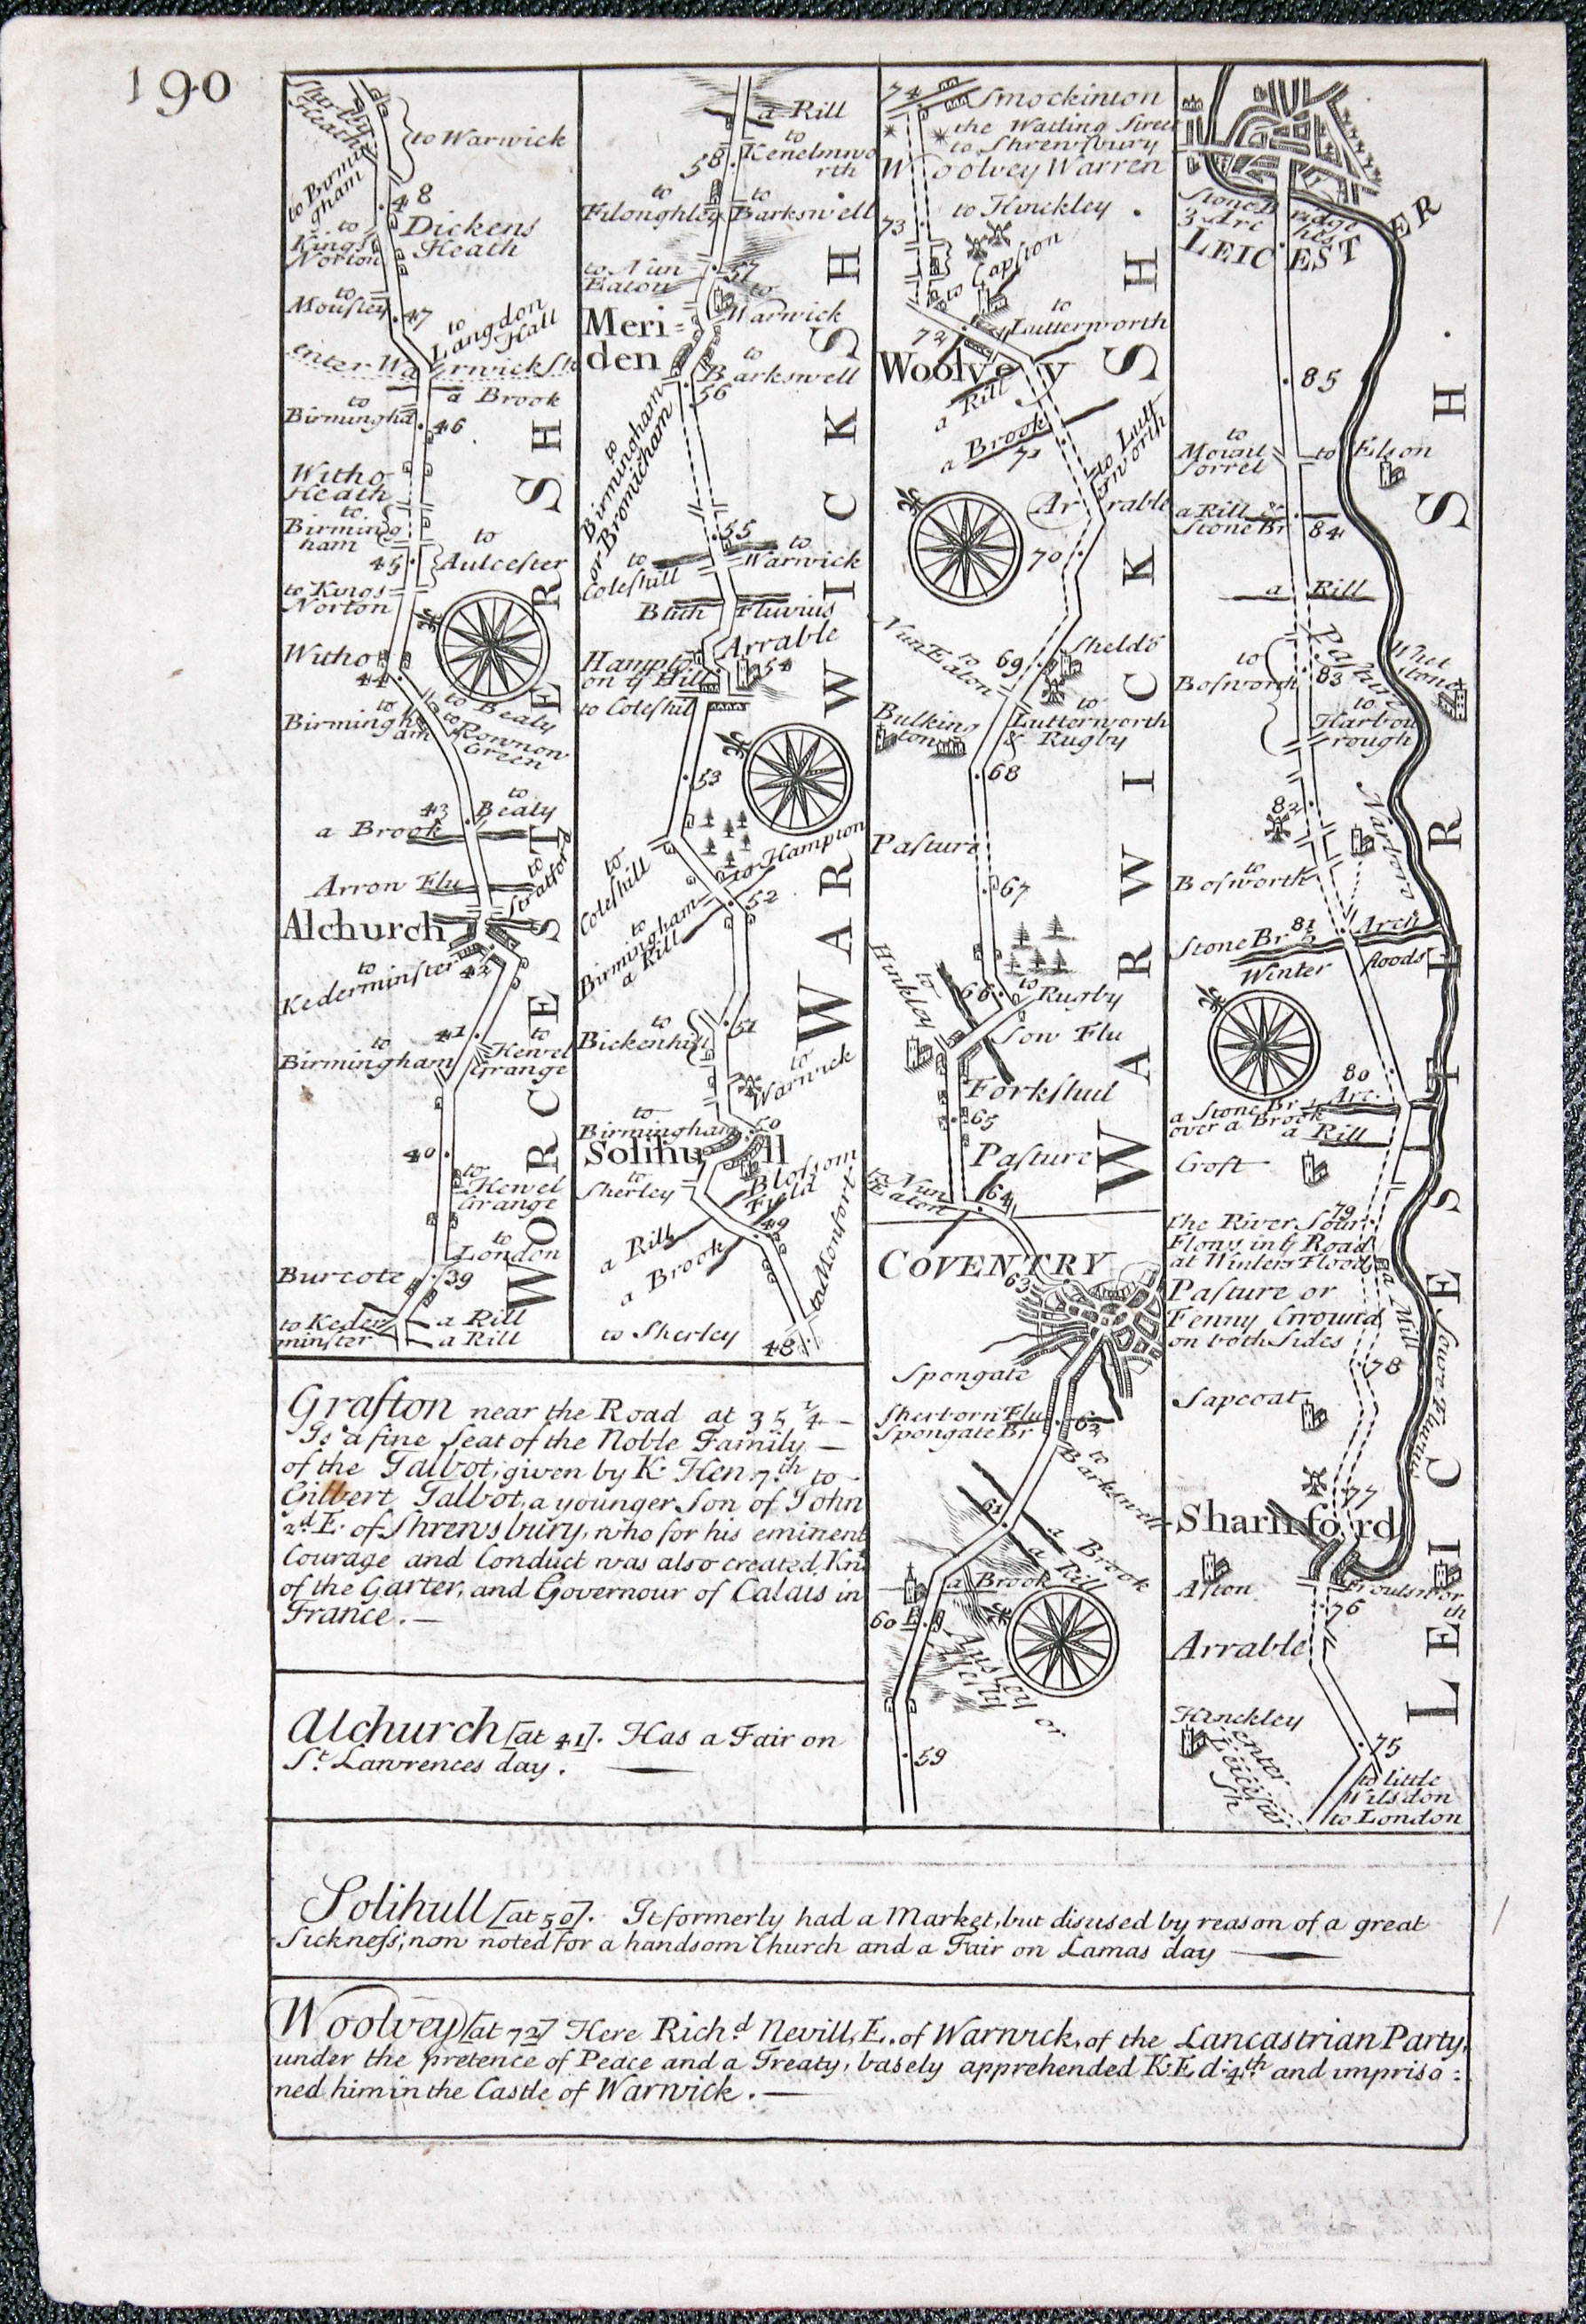 190
to Warwick
48
Dickens
Heath
to
Kings
Norton
to
Mousley
47
to
Langdon
Hall
enter Warwick Sh
a Brook
to
Birmingha
46
Witho
Heath
to
Birming
ham
to
Aulcester
45
to Kings
Norton
Witho
44
to
Birmingh
am
to Bealy
to
Rownon
Green
43
to
Bealy
a Brook
Arron Flu
to
Stratford
Alchurch
to
Kederminster
42
41
to
Birmingham
to
Hewel
Grange
40
to
Hewel
Grange
to
London
Burcote
39
to Keder
minster
a Rill
a Rill
WORCESTERSH
a Rill
58
to
Kenelmwo
rth
to
Filonghley
to
Barkswell
to Nun
Eaton
57
to
Warwick
Meri=
den
to
Barkswell
56
to
Birmingham
or Bromicham
55
to
Coleshill
to
Warwick
Blith Fluvius
Arrable
Hampto
on ye Hill
54
to Coleshil
53
to
Coleshill
to Hampton
52
to
Birmingham
a Rill
51
to
Bickenhill
to
Warwick
to
Birmingham
50
Solihull
to
Sherley
Blossom
Field
49
a Rill
a Brook
to Monford
to Sherley
48
WARWICKSH
74
Smockinton
the Watling Street
to Shrewsbury
Woolvey Warren
73
to Hinckley
to Capston
to
Lutterworth
72
Woolvey
a Rill
a Brook
71
to Lutt
erworth
Arrable
70
to
Nun Eaton
69
Sheldo
Bulking
ton
to
Lutterworth
& Rugby
68
Pasture
67
to
Hinkley
66
to
Rugby
Sow Flu
Forkshul
65
Pasture
to Nun
Eaton
64
COVENTRY
63
Spongate
Sherborn Flu
Spongate Br
62
to
Barkswell
61
a Brook
a Rill
a Brook
60
Ausley or
59
WARWICKSH
Stone Bridge
3 Arches
LEICESTER
85
to
Mount
Sorrel
to Elson
a Rill &
Stone Br
84
a Rill
to
Bosworth
Pasture
83
Whet
stone
to
Harbou
rough
82
Narboro
to
Bosworth
81
Stone Br 5 Arch
Winter floods
80
a Stone Br 1 Arc.
over a Brook
a Rill
Croft
79
the River Sour
Flows in ye Road
at Winters Flood
Pasture or
Fenny Ground
on both Sides
a Mill
78
Sapcoat
Soure Fluvius
77
Sharnford
Aston
76
Arrable
Hinckley
enter
Leicester
Sh
75
to little
Wilsdon
to London
LEICESTERSH.
Grafton near the Road at 35 1/4 —
Is a fine Seat of the Noble Family —
of the Talbot, given by K. Hen. 7.th to
Gilbert Talbot, a younger Son of John
2d E. of Shrewsbury, who for his eminent
Courage and Conduct was also created Knt
of the Garter, and Governour of Calais in
France. —
Alchurch [at 41]. Has a Fair on
St. Lawrences day. —
Solihull [at 50]. It formerly had a Market, but disused by reason of a great
Sickness, now noted for a handsom Church and a Fair on Lamas day —
Woolvey [at 72] Here Richd. Nevill, E. of Warwick, of the Lancastrian Party,
under the pretence of Peace and a Treaty, basely apprehended K. Ed. 4th. and impriso=
ned him in the Castle of Warwick. —